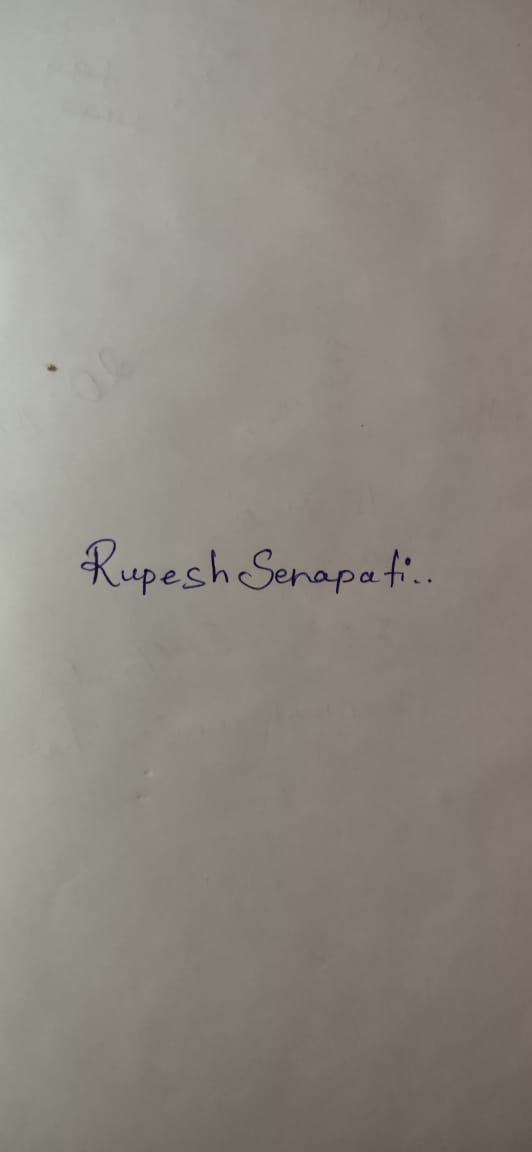 Rupesh Senapati..